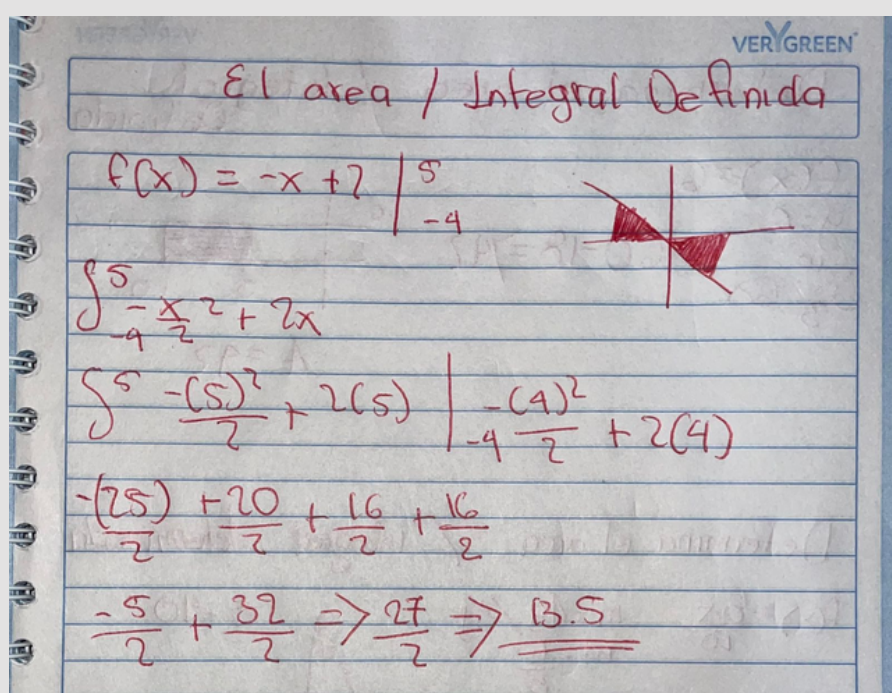 VERYGREEN
El area / Integral Definida
f(x) = -x + 2 | 5 -4
∫ 5 -4 -x/2 2 + 2x
∫ 5 -(5)²/2 + 2(5) | -4 -(4)²/2 + 2(4)
-(25)/2 + 20/2 + 16/2 + 16/2
-5/2 + 32/2 => 27/2 => 13.5